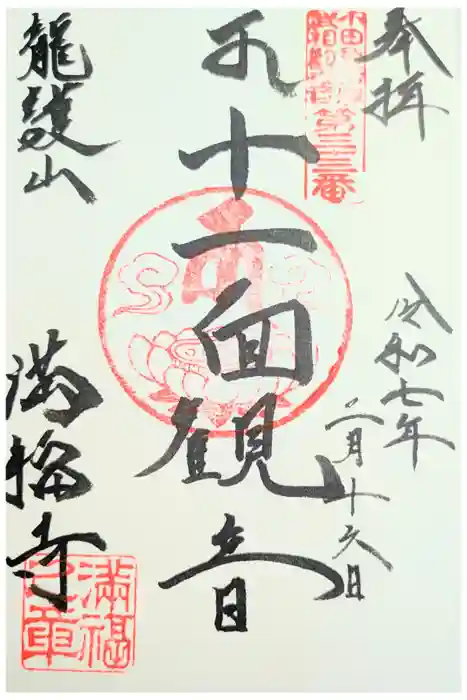 奉拝
令和七年
二月十六日
第三三番
十一面観音
龍護山
満福寺
滿福
之章